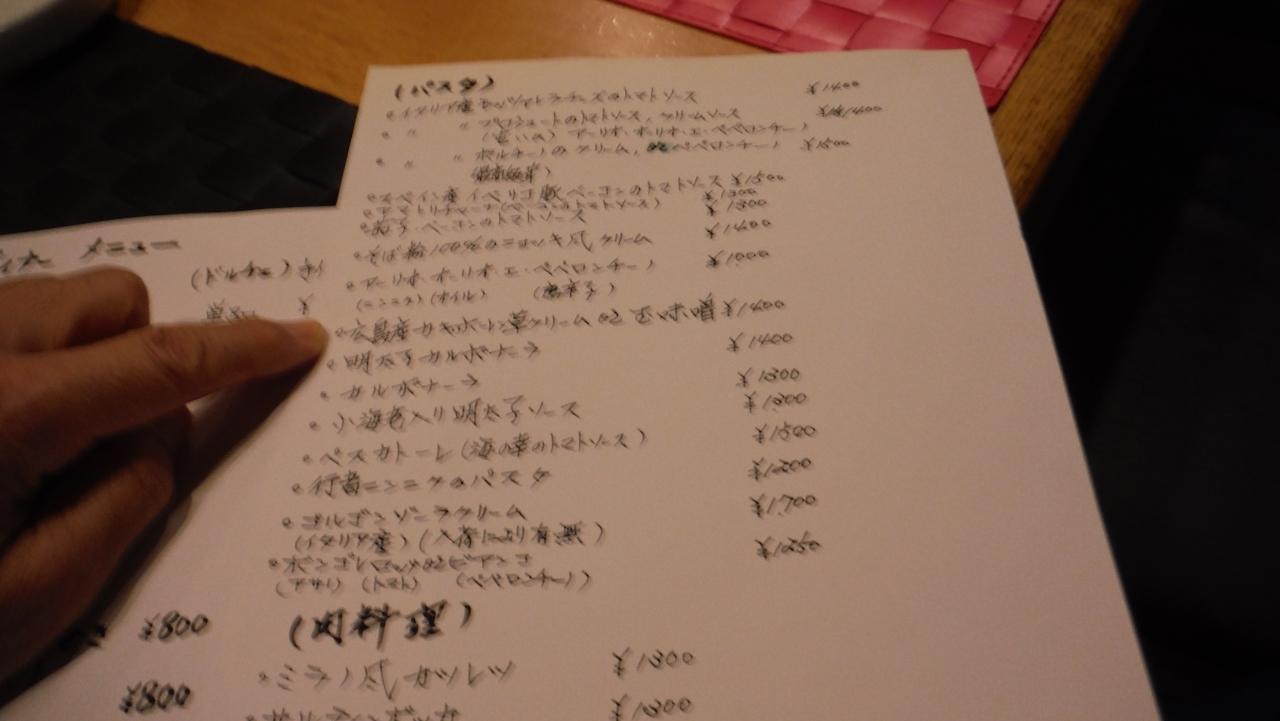 (パスタ)
•イタリア産モッツァレラチーズのトマトソース ¥1400
• 〃 〃 プロシュートのトマトソース, クリームソース ¥1400
(生ハム) アーリオ・オーリオ・エ・ペペロンチーノ
• 〃 〃 ポルチーノのクリーム, ペペロンチーノ ¥1500
•スペイン産イベリコ豚ベーコンのトマトソース ¥1500
•アマトリチャーナ(ベーコンのトマトソース) ¥1300
•茄子・ベーコンのトマトソース ¥1300
•そば粉100%のニョッキ風クリーム ¥1400
•アーリオ・オーリオ・エ・ペペロンチーノ ¥1000
(ニンニク)(オイル) (唐辛子)
•広島産カキホーレン草クリーム or 西京味噌 ¥1400
•明太子カルボナーラ ¥1400
•カルボナーラ ¥1300
•小海老入り明太子ソース ¥1200
•ペスカトーレ(海の幸のトマトソース) ¥1500
•行者ニンニクのパスタ ¥1200
•ゴルゴンゾーラクリーム ¥1700
(イタリア産)(入荷により有無)
•ボンゴレロッソorビアンコ ¥1250
(アサリ) (トマト) (ペペロンチーノ)
(肉料理)
•ミラノ風カツレツ ¥1300
¥1300
ディナーメニュー
(ドルチェ)
単品 ¥
¥800
¥800